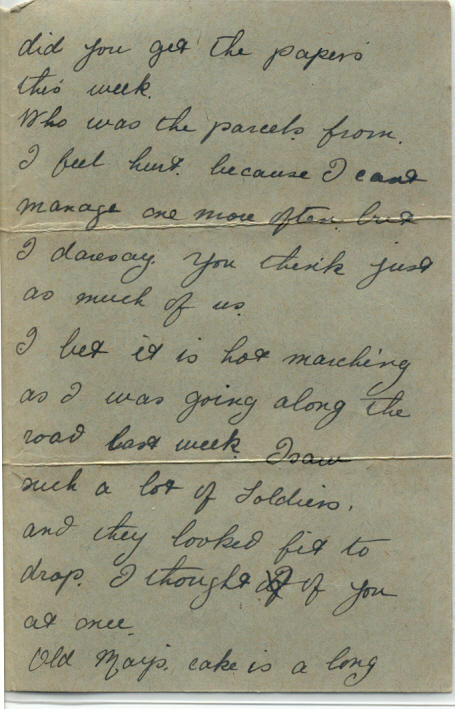 did you get the papers
this week.
Who was the parcels from.
I feel hurt. because I cant
manage one more often but
I daresay. you think just
as much of us.
I bet it is hot marching
as I was going along the
road last week. I saw
such a lot of Soldiers.
and they looked fit to
drop. I thought of you
at once.
Old May's. cake is a long